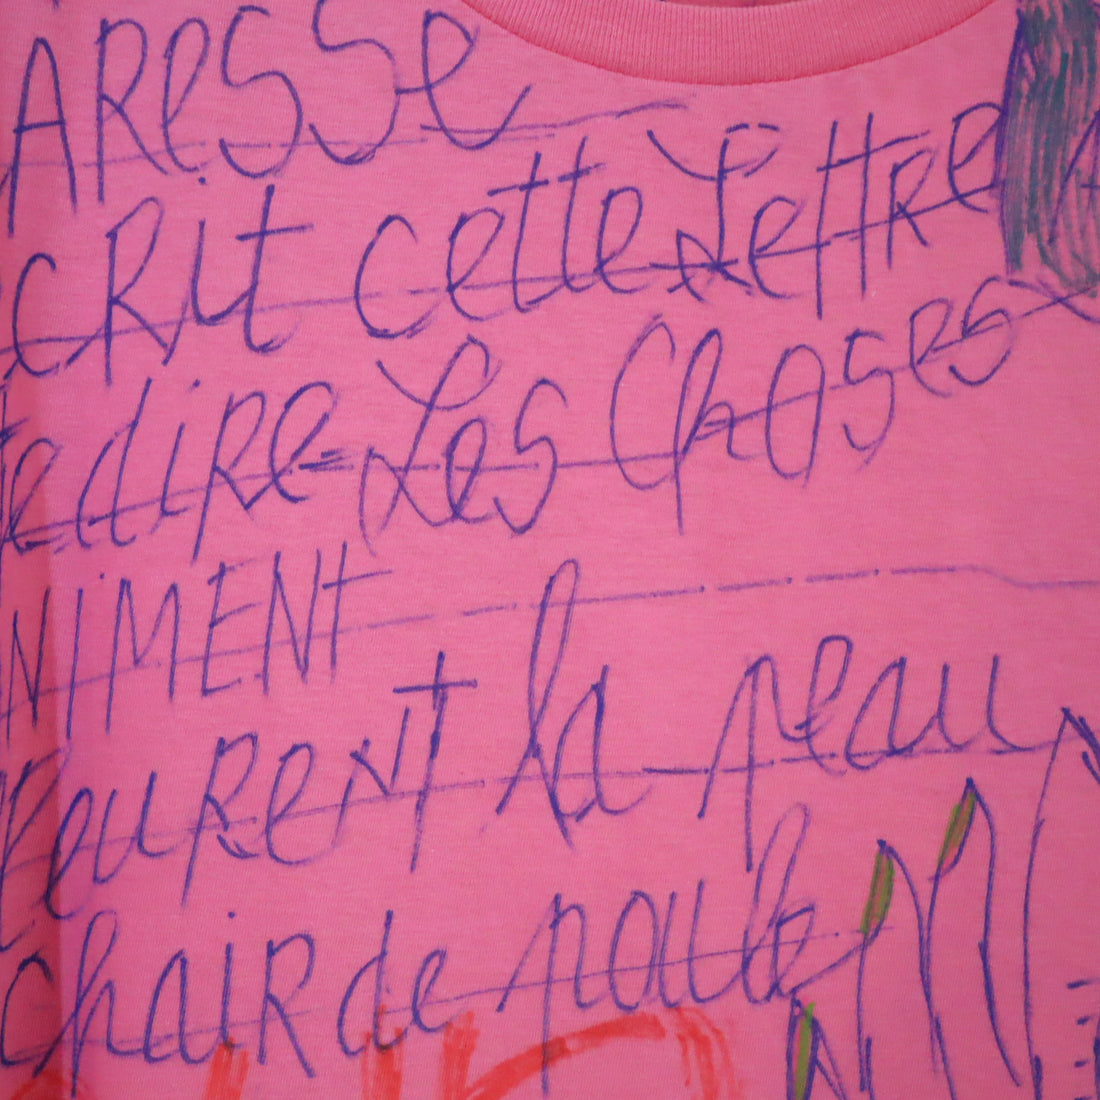 ARESSE
CRIT cette Lettre
te dire Les Choses
NIMENT
EURENT la peau
chair de poule